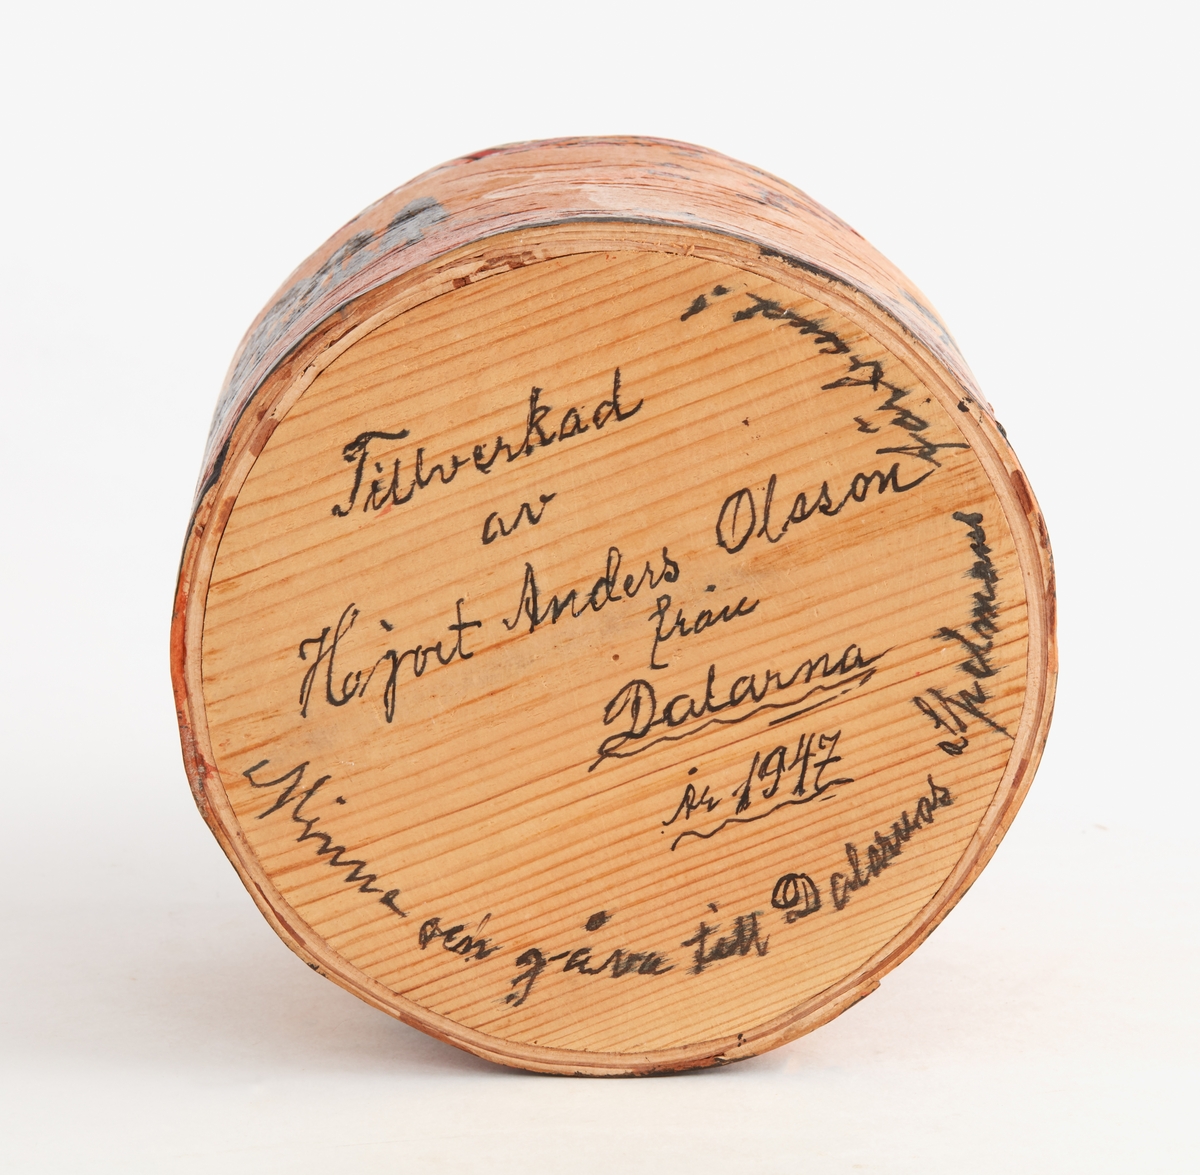 Tillverkad
av
Hojort Anders Olsson
från
Dalarna
år 1947
Minne och gåva till Dalarnas